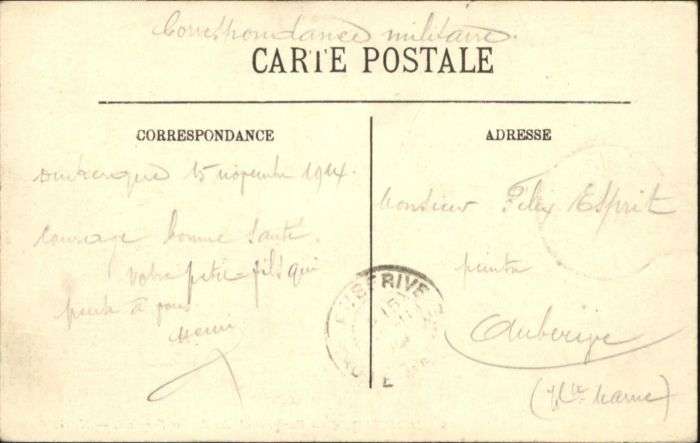 Correspondance militaire.
CARTE POSTALE
CORRESPONDANCE
Dunkerque 15 novembre 1914.
Courage bonne santé.
Votre petit-fils qui
pense à vous
Henri
ADRESSE
Monsieur Félix Esprit
peintre
Auberive
(Hte Marne)
AUBERIVE